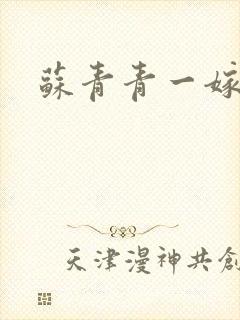 蘇青青一嫁
天津漫神共創